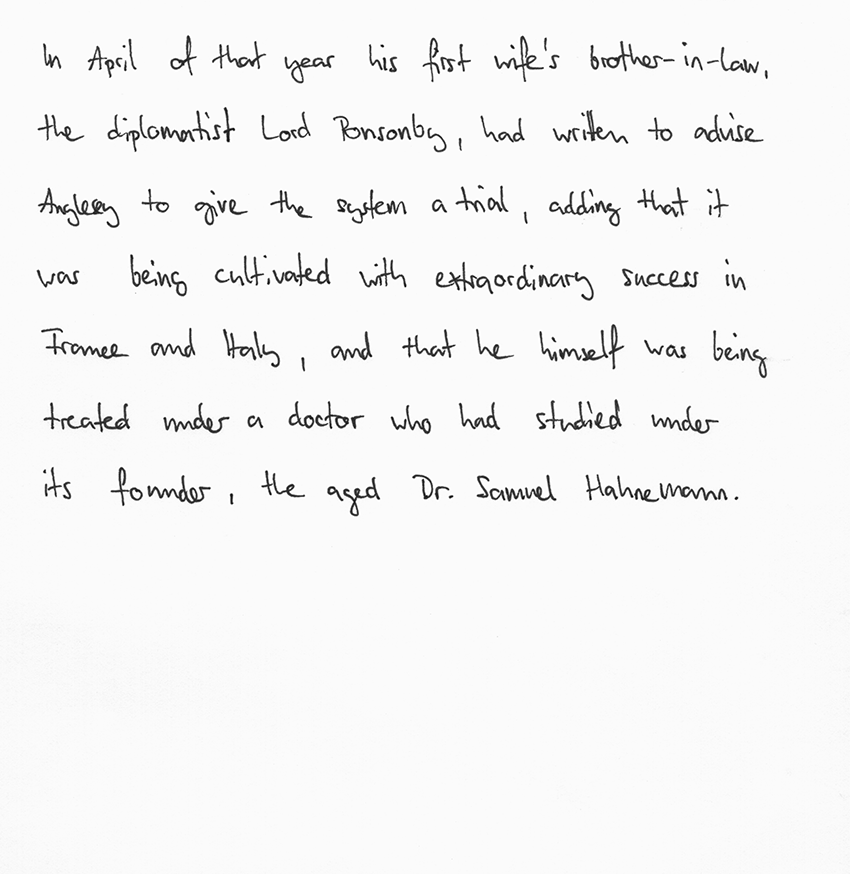 In April of that year his first wife's brother-in-law,
the diplomatist Lord Ponsonby, had written to advise
Anglesey to give the system a trial, adding that it
was being cultivated with extraordinary success in
France and Italy, and that he himself was being
treated under a doctor who had studied under
its founder, the aged Dr. Samuel Hahnemann.